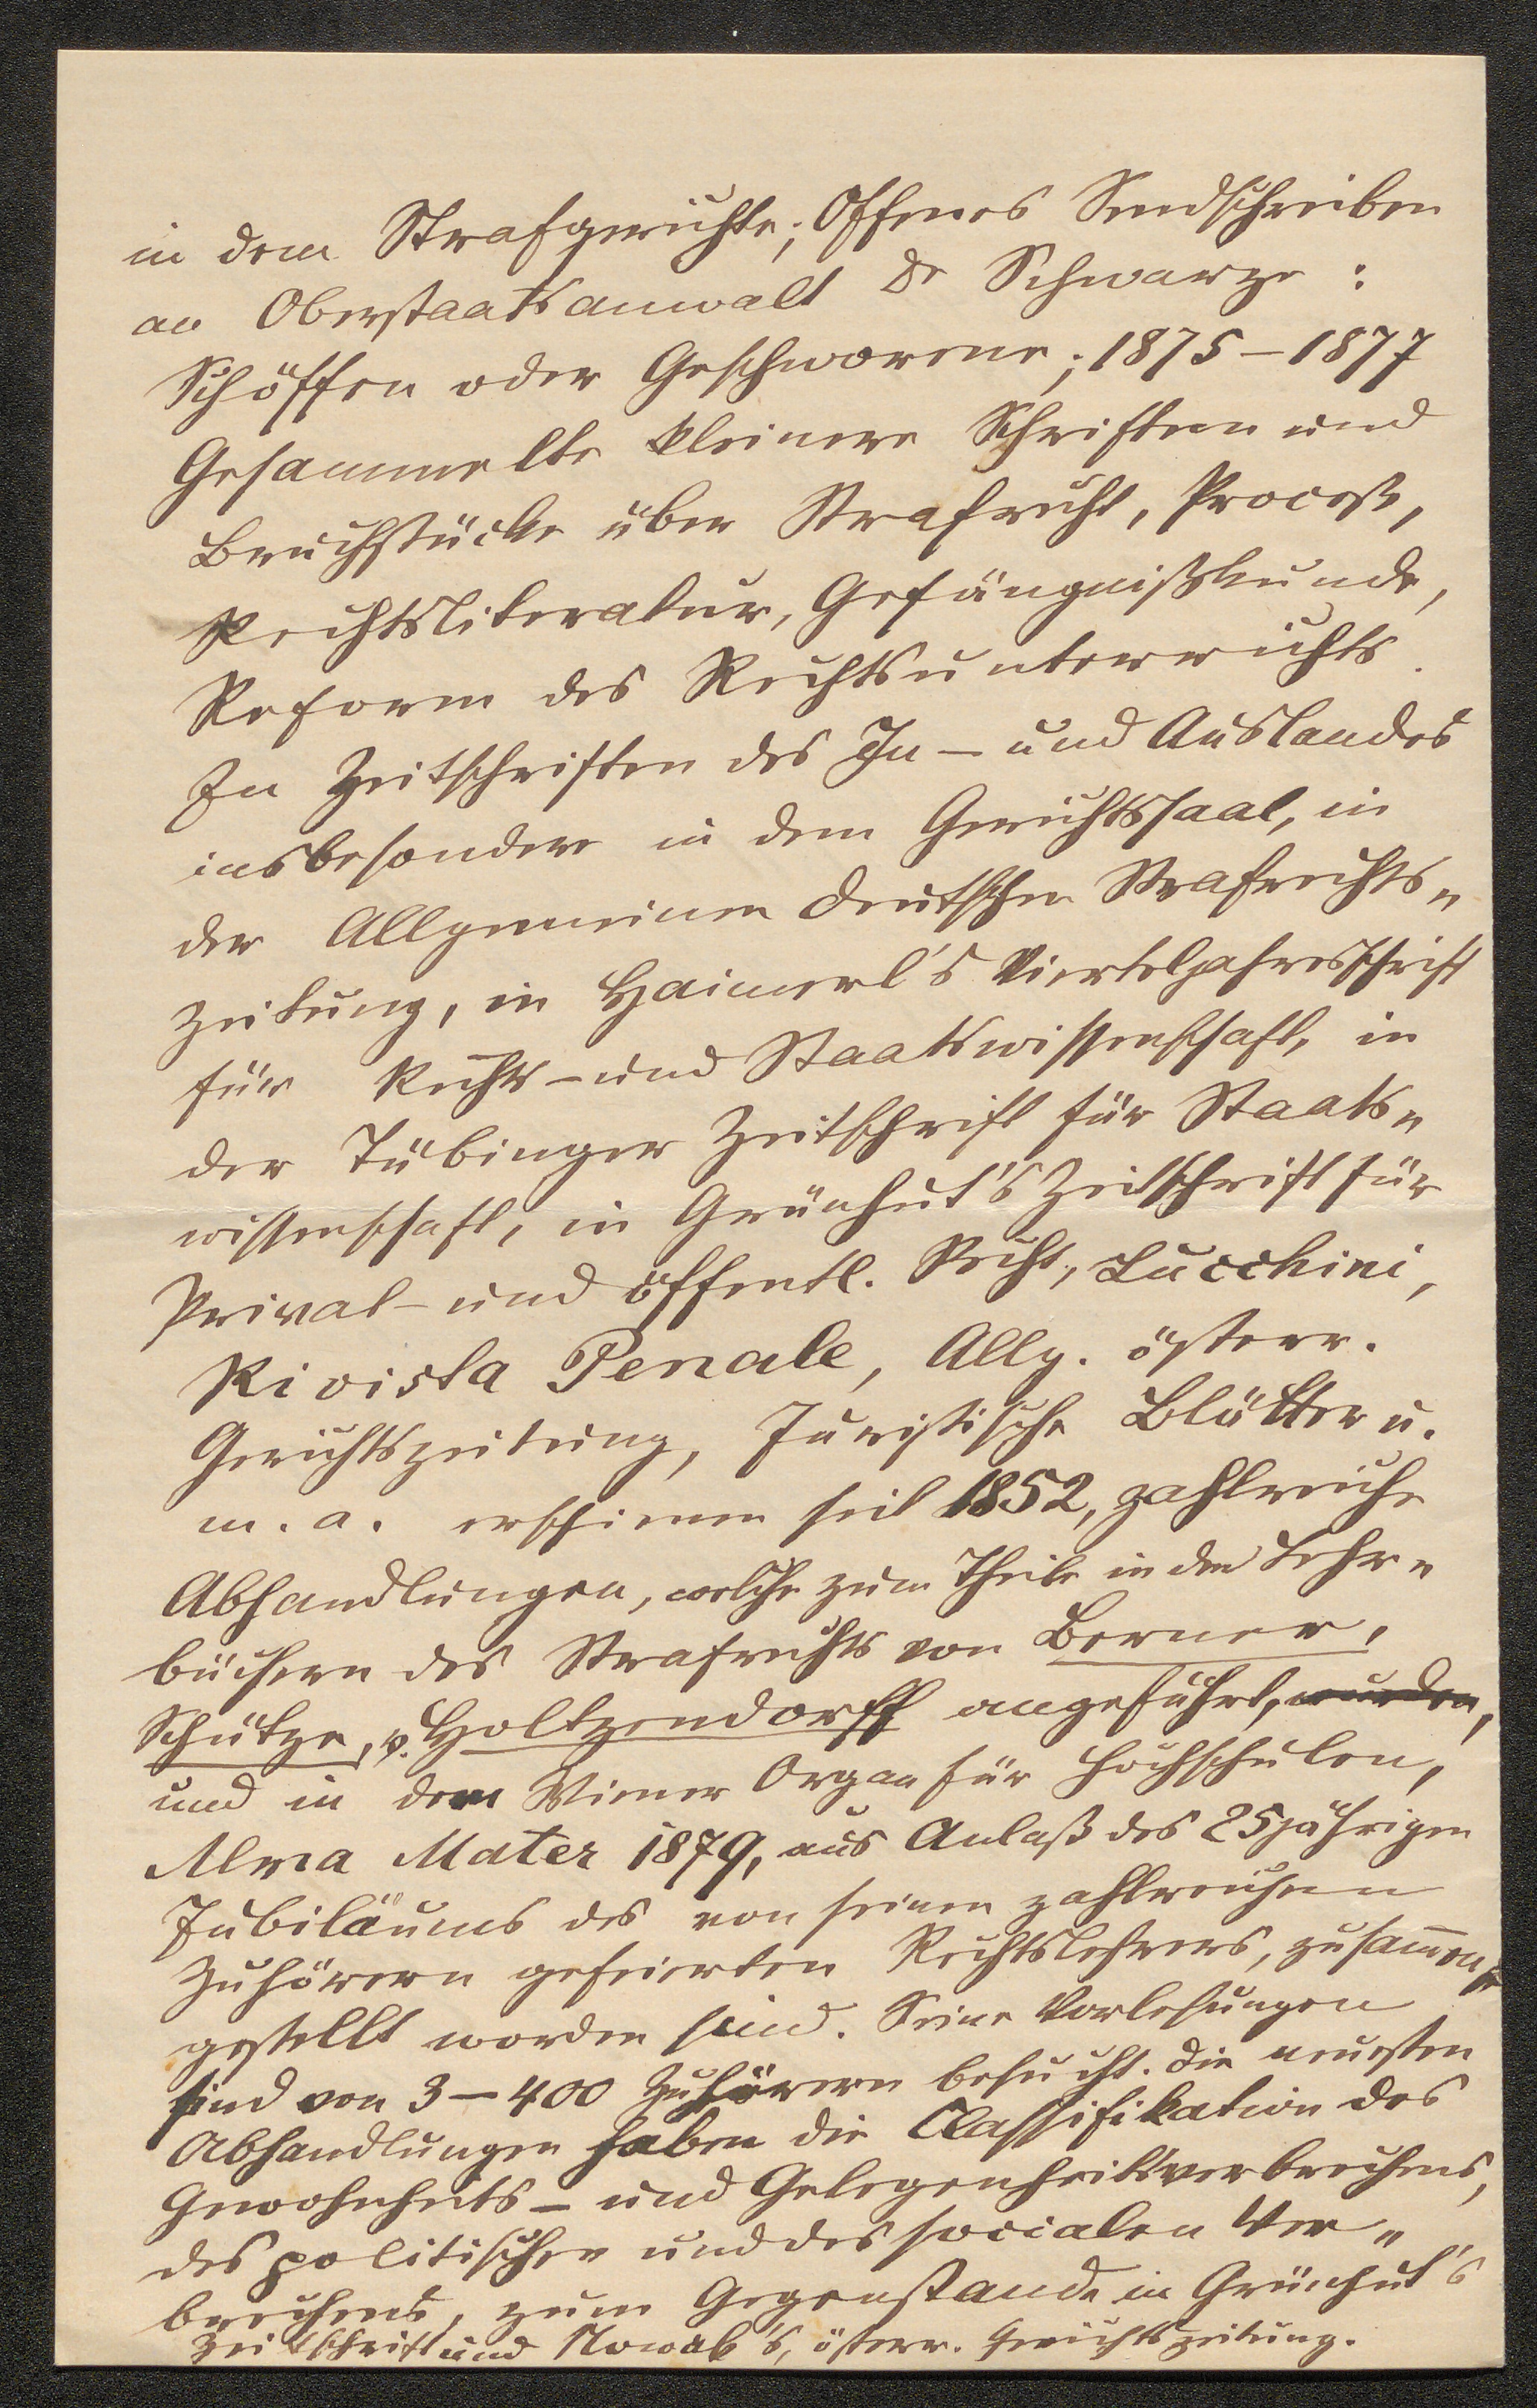 in dem Strafgerichte; Offenes Sendschreiben
an Oberstaatsanwalt Dr Schwarze:
Schöffen oder Geschworene; 1875–1877
Gesammelte kleinere Schriften und
Bruchstücke über Strafrecht, Proceß,
Rechtsliteratur, Gefängnißkunde,
Reform des Rechtsunterrichts.
In Zeitschriften des In- und Auslandes
insbesondere in dem Gerichtssaal, in
der Allgemeinen deutschen Strafrechts„
zeitung, in Haimerl's Vierteljahresschrift
für Rechts- und Staatswissenschaft, in
der Tübinger Zeitschrift für Staats„
wissenschaft, in Grünhut's Zeitschrift für
Privat- und öffentl. Recht, Lucchini,
Rivista Penale, Allg. österr.
Gerichtszeitung, Juristische Blätter u.
m. a. erschienen seit 1852, zahlreiche
Abhandlungen, welche zum Theile in den Lehr„
büchern des Strafrechts von Berner,
Schütze, v. Holtzendorff angeführt, wurden,
und in dem Wiener Organ für Hochschulen,
Alma Mater 1879, aus Anlaß des 25jährigen
Jubiläums des von seinen zahlreichen
Zuhörern gefeierten Rechtslehrers, zusammen„
gestellt worden sind. Seine Vorlesungen
sind von 3–400 Zuhörern besucht. Die neuesten
Abhandlungen haben die Classifikation des
Gewohnheits- und Gelegenheitsverbrechens,
des politischen und des socialen Ver„
brechens, zum Gegenstande in Grünhut's
Zeitschrift und Nowak's, österr. Gerichtszeitung.